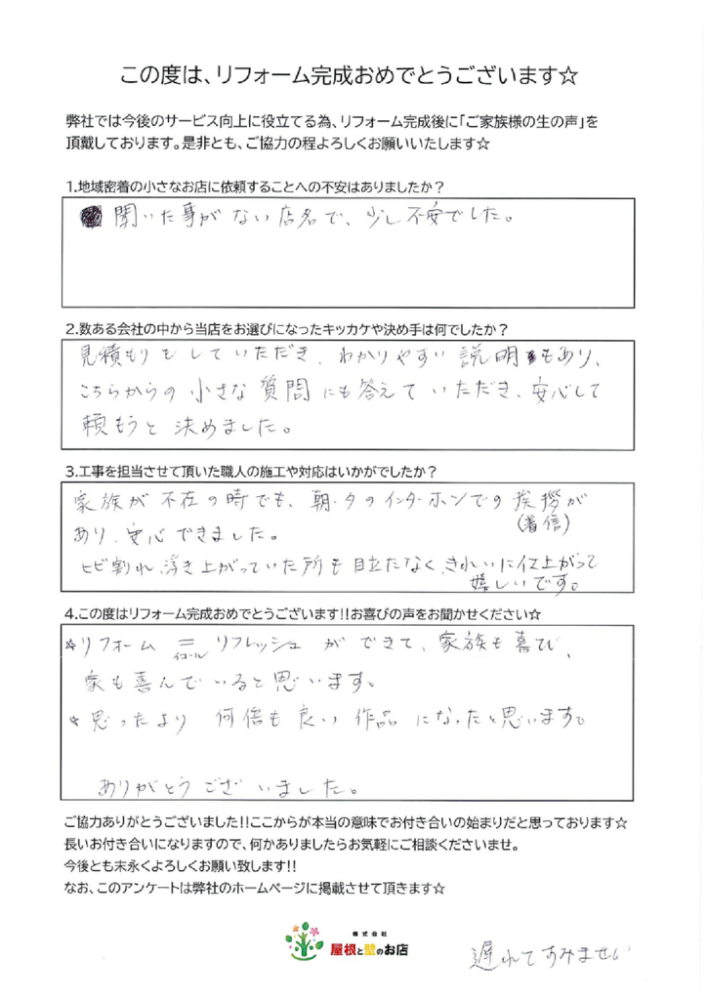 この度は、リフォーム完成おめでとうございます☆
弊社では今後のサービス向上に役立てる為、リフォーム完成後に「ご家族様の生の声」を
頂戴しております。是非とも、ご協力の程よろしくお願いいたします☆
1.地域密着の小さなお店に依頼することへの不安はありましたか？
聞いた事がない店名で、少し不安でした。
2.数ある会社の中から当店をお選びになったキッカケや決め手は何でしたか？
見積もりをしていただき、わかりやすい説明もあり、
こちらからの小さな質問にも答えていただき、安心して
頼もうと決めました。
3.工事を担当させて頂いた職人の施工や対応はいかがでしたか？
家族が不在の時でも、朝・夕のインターホンでの挨拶が
(着信)
あり、安心できました。
ヒビ割れ、浮き上がっていた所も目立たなく、きれいに仕上がって
嬉しいです。
4.この度はリフォーム完成おめでとうございます!!お喜びの声をお聞かせください☆
☆リフォーム＝リフレッシュができて、家族も喜び、
イコール
家も喜んでいると思います。
☆思ったより何倍も良い作品になったと思います。
ありがとうございました。
ご協力ありがとうございました!!ここからが本当の意味でお付き合いの始まりだと思っております☆
長いお付き合いになりますので、何かありましたらお気軽にご相談くださいませ。
今後とも末永くよろしくお願い致します!!
なお、このアンケートは弊社のホームページに掲載させて頂きます☆
株式会社
屋根と壁のお店
遅れてすみません